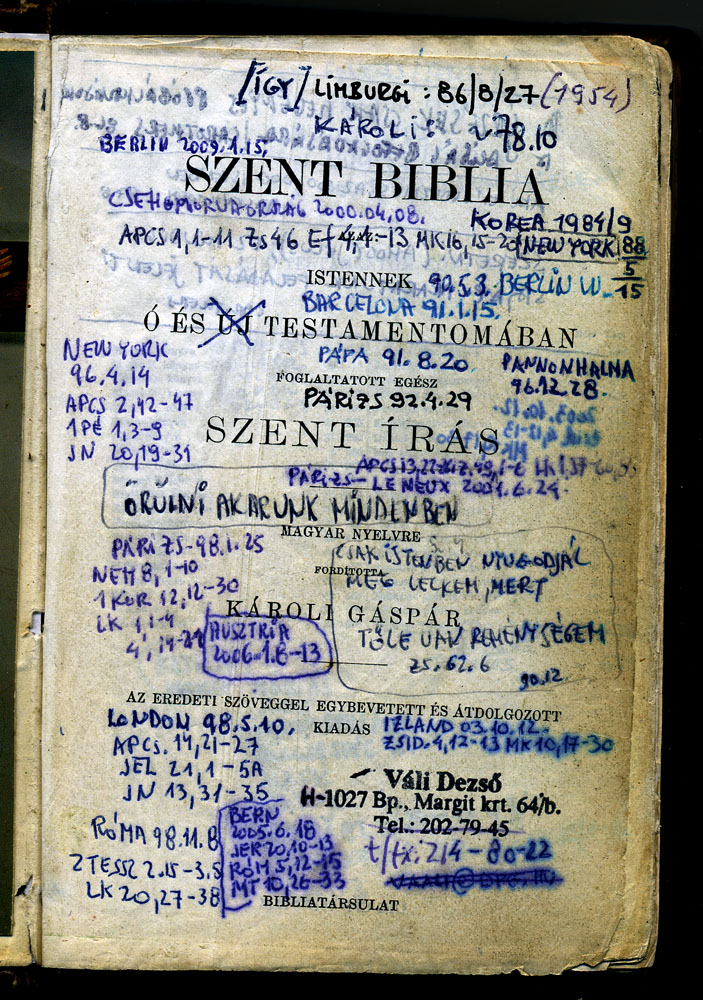 [ÍGY] LIMBURGI : 86/8/27 (1954)
KÁROLI
78.10
BERLIN 2009.1.15.
SZENT BIBLIA
2000.04.08.
KOREA 1984/9
APCS 1,1-11 ZS 46 Ef 4,1-13 MK 16,15-20
NEW YORK 88
5
15
ISTENNEK
90.5.3. BERLIN W.
BARCELONA 91.1.15.
Ó ÉS ÚJ TESTAMENTOMÁBAN
NEW YORK
96.4.14
APCS 2,42-47
1PÉ 1,3-9
JN 20,19-31
PÁPA 91.8.20
PANNONHALMA
96.12.28.
FOGLALTATOTT EGÉSZ
PÁRIZS 92.4.29
SZENT ÍRÁS
PÁRIZS-LENEUX 2001.6.24.
ÖRÜLNI AKARUNK MINDENBEN
MAGYAR NYELVRE
FORDÍTOTTA
KÁROLI GÁSPÁR
PÁRIZS-98.1.25
NEH 8,1-10
1 KOR 12,12-30
LK 1,1-4
4,14-21
CSAK ISTENBEN NYUGODJÁL
MEG LELKEM, MERT
TŐLE VAN REMÉNYSÉGEM
ZS. 62.6
90.12.
AUSZTRIA
2006.1.8-13
AZ EREDETI SZÖVEGGEL EGYBEVETETT ÉS ÁTDOLGOZOTT
KIADÁS
LONDON 98.5.10.
APCS. 14,21-27
JEL 21,1-5A
JN 13,31-35
IZLAND 03.10.12.
ZSID. 4,12-13 MK 10,17-30
Váli Dezső
H-1027 Bp., Margit krt. 64/b.
Tel.: 202-79-45
t/fx: 214-80-22
RÓMA 98.11.8
2 TESSZ 2.15-3.5
LK 20,27-38
BERN
2005.6.18
JER 20,10-13
RÓM 5,12-15
MT 10,26-33
BIBLIATÁRSULAT